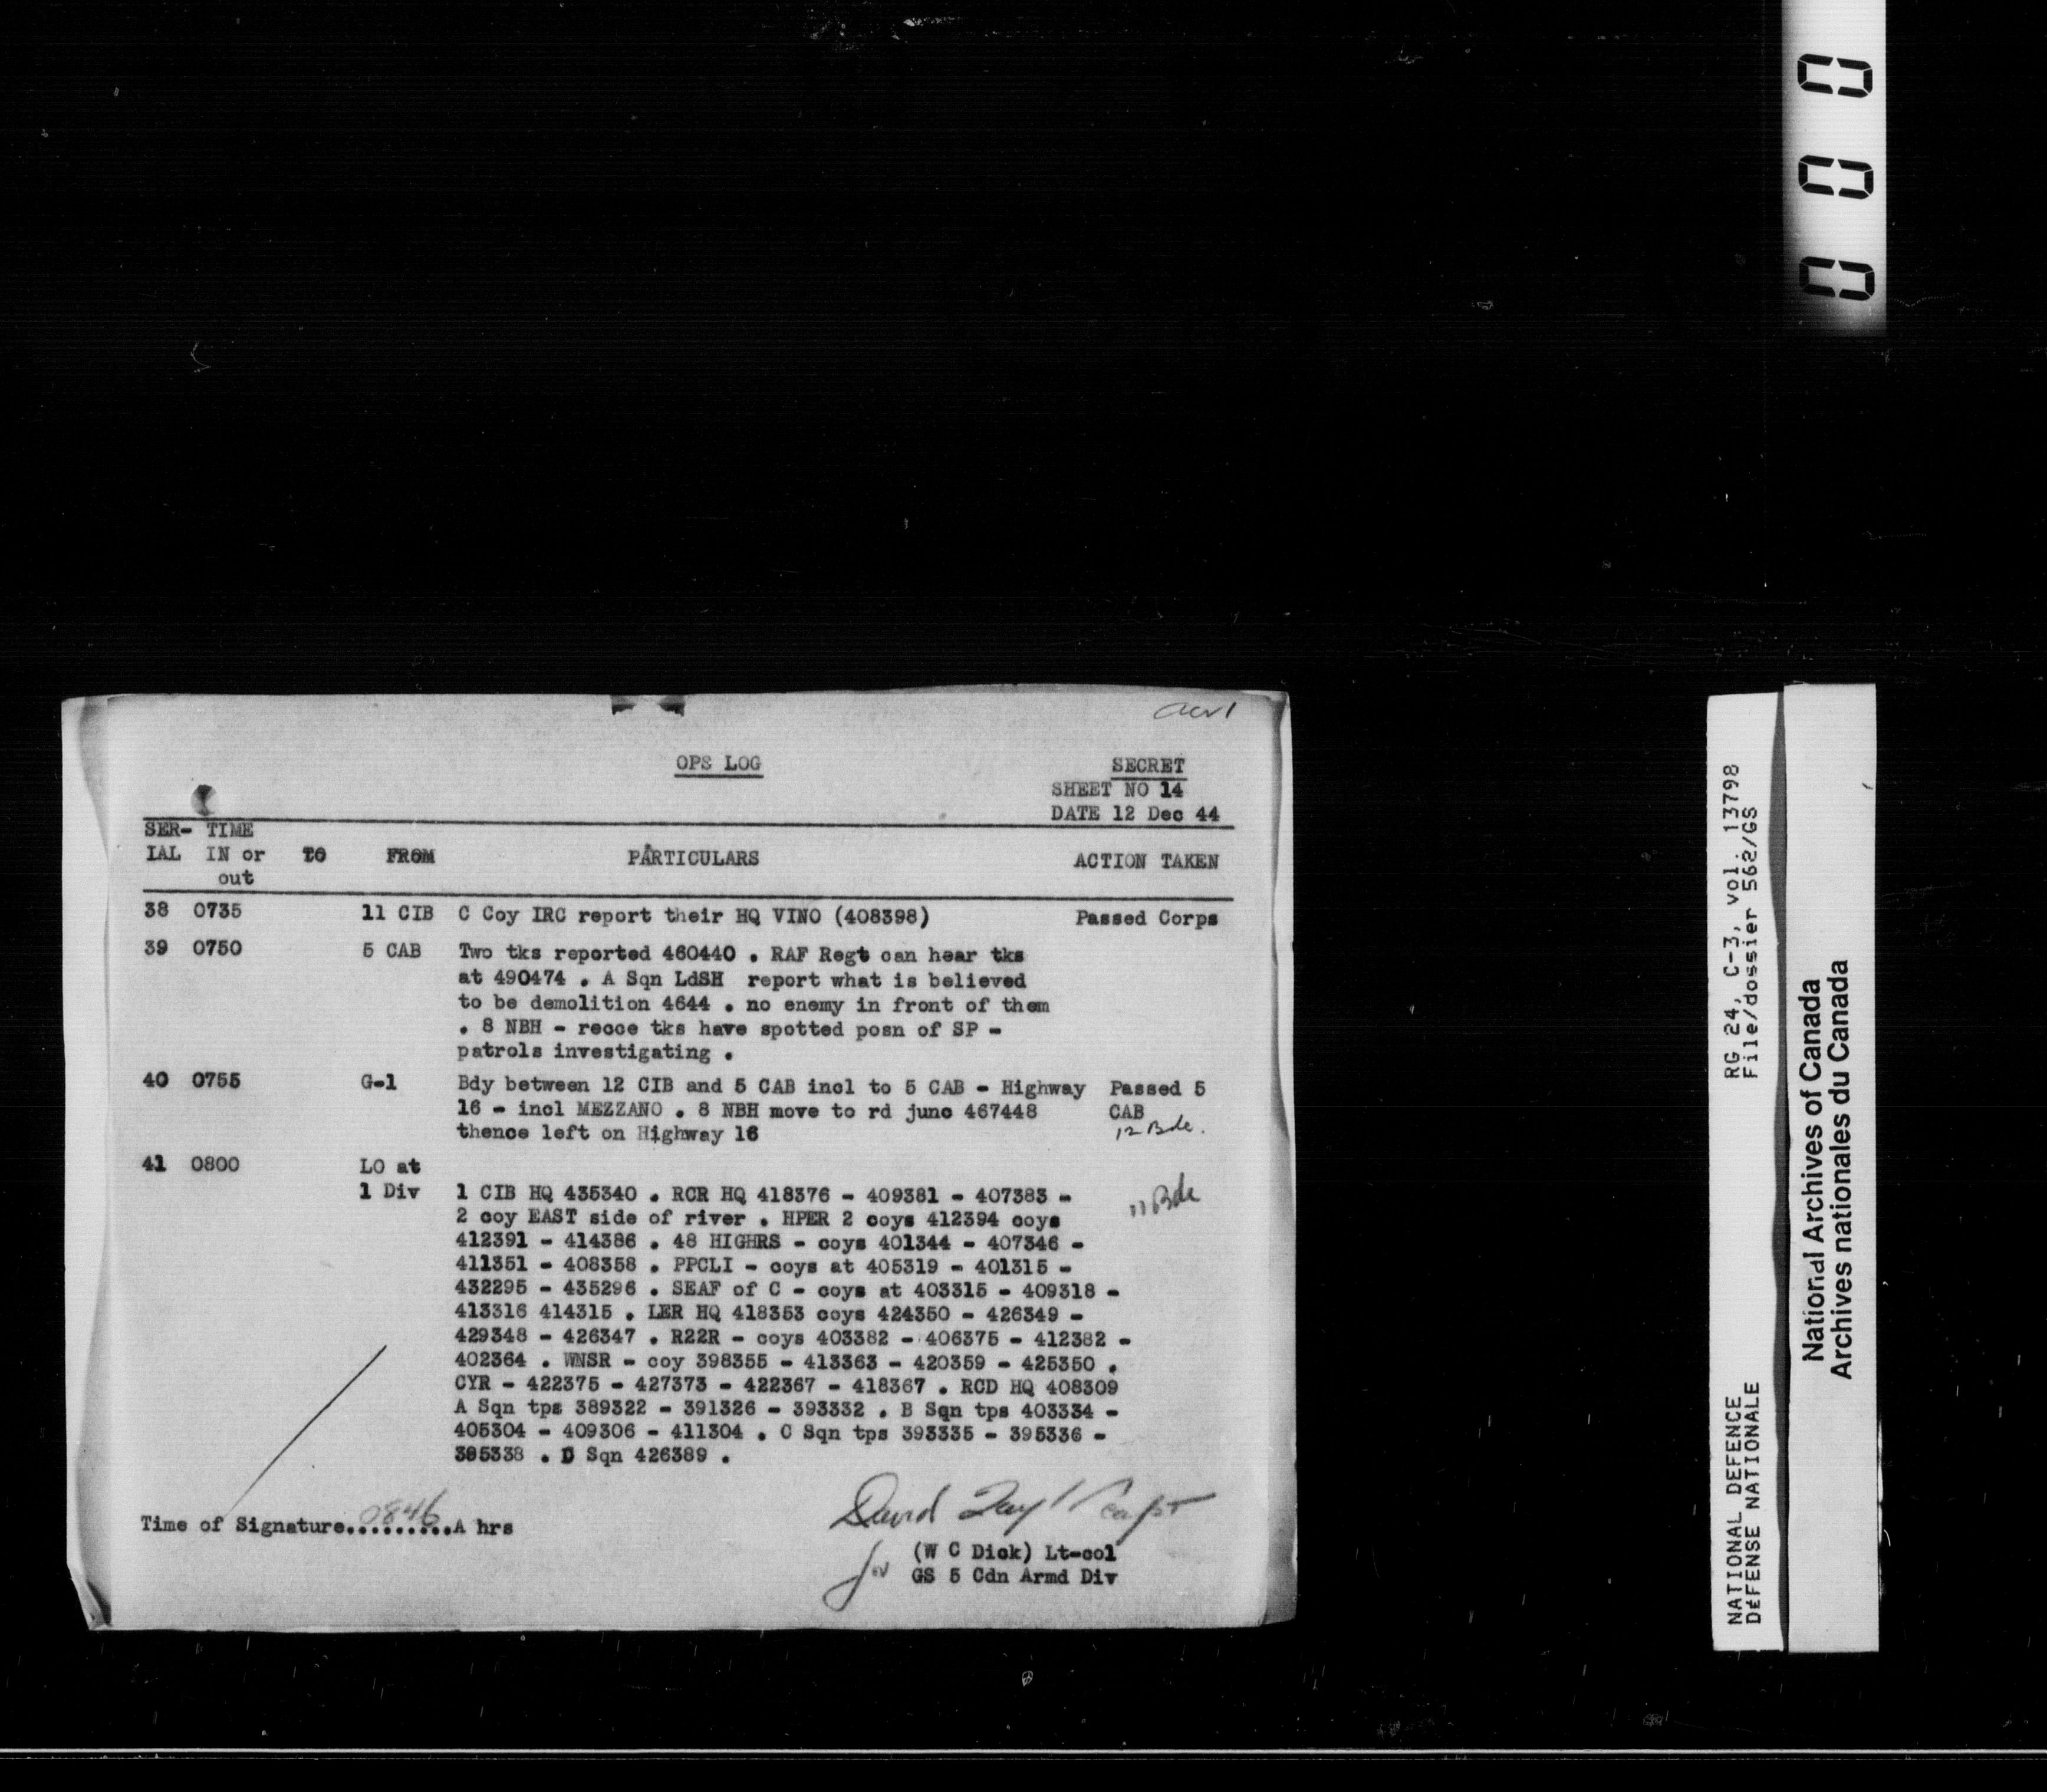 0 0 0
OPS LOG
SECRET
SHEET NO 14
DATE 12 Dec 44
SER- TIME
IAL IN or TO FROM PARTICULARS ACTION TAKEN
out
38 0735 11 CIB C Coy IRC report their HQ VINO (408398) Passed Corps
39 0750 5 CAB Two tks reported 460440 . RAF Regt can hear tks
at 490474 . A Sqn LdSH report what is believed
to be demolition 4644 . no enemy in front of them
. 8 NBH - recce tks have spotted posn of SP -
patrols investigating .
40 0755 G-1 Bdy between 12 CIB and 5 CAB incl to 5 CAB - Highway Passed 5
16 - incl MEZZANO . 8 NBH move to rd junc 467448 CAB
thence left on Highway 16 12 Bde.
41 0800 LO at
1 Div 1 CIB HQ 435340 . RCR HQ 418376 - 409381 - 407383 - 11 Bde
2 coy EAST side of river . HPER 2 coys 412394 coys
412391 - 414386 . 48 HIGHRS - coys 401344 - 407346 -
411351 - 408358 . PPCLI - coys at 405319 - 401315 -
432295 - 435296 . SEAF of C - coys at 403315 - 409318 -
413316 414315 . LER HQ 418353 coys 424350 - 426349 -
429348 - 426347 . R22R - coys 403382 - 406375 - 412382 -
402364 . WNSR - coy 398355 - 413363 - 420359 - 425350 .
CYR - 422375 - 427373 - 422367 - 418367 . RCD HQ 408309
A Sqn tps 389322 - 391326 - 393332 . B Sqn tps 403334 -
405304 - 409306 - 411304 . C Sqn tps 393335 - 395336 -
395338 . D Sqn 426389 .
Time of Signature 0846 A hrs
David Capt
for (W C Dick) Lt-col
GS 5 Cdn Armd Div
RG 24, C-3, vol. 13798
File/dossier 562/GS
NATIONAL DEFENCE
DÉFENSE NATIONALE
National Archives of Canada
Archives nationales du Canada